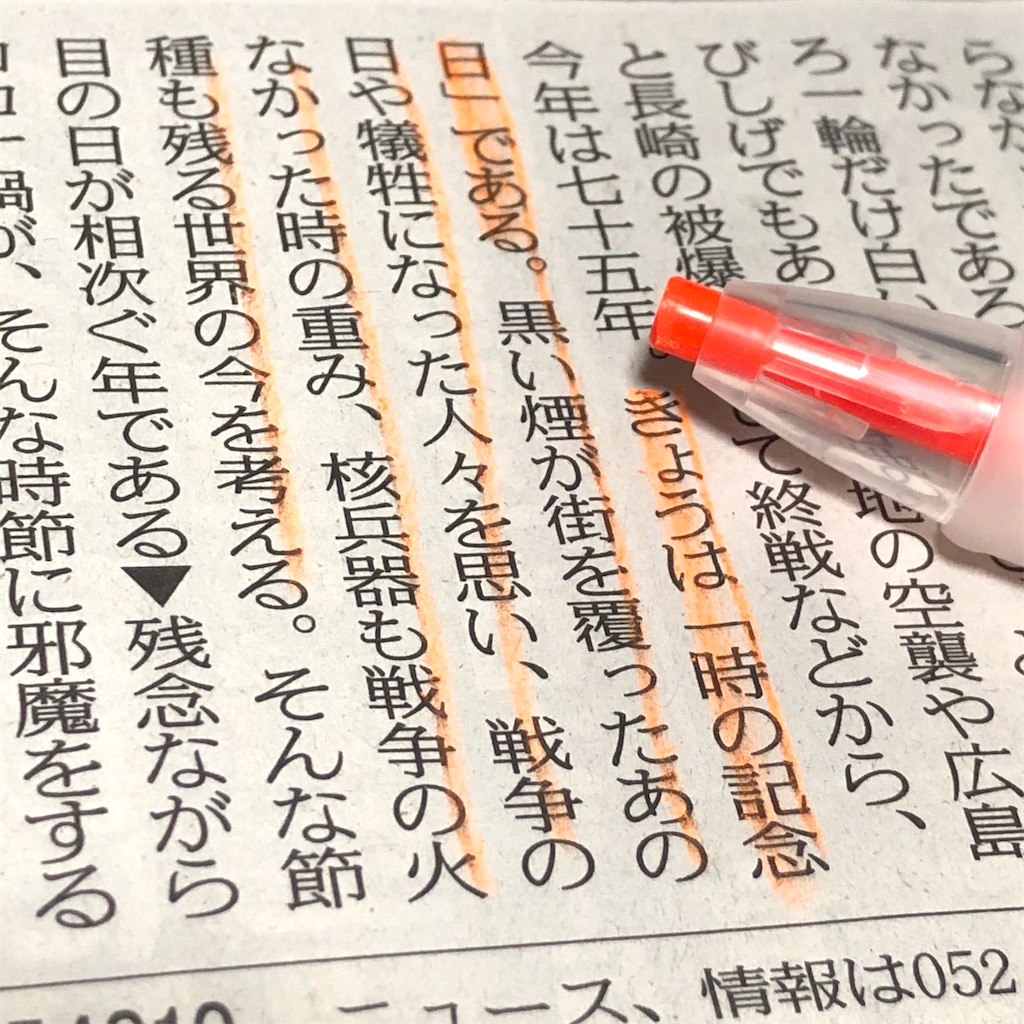 らなか
なかったであろ
ろ一輪だけ白い
びしげでもあ 地の空襲や広島
と長崎の被爆 て終戦などから、
今年は七十五年。きょうは「時の記念
日」である。黒い煙が街を覆ったあの
日や犠牲になった人々を思い、戦争の
なかった時の重み、核兵器も戦争の火
種も残る世界の今を考える。そんな節
目の日が相次ぐ年である▼残念ながら
禍が、そんな時節に邪魔をする
ニュース、情報は052